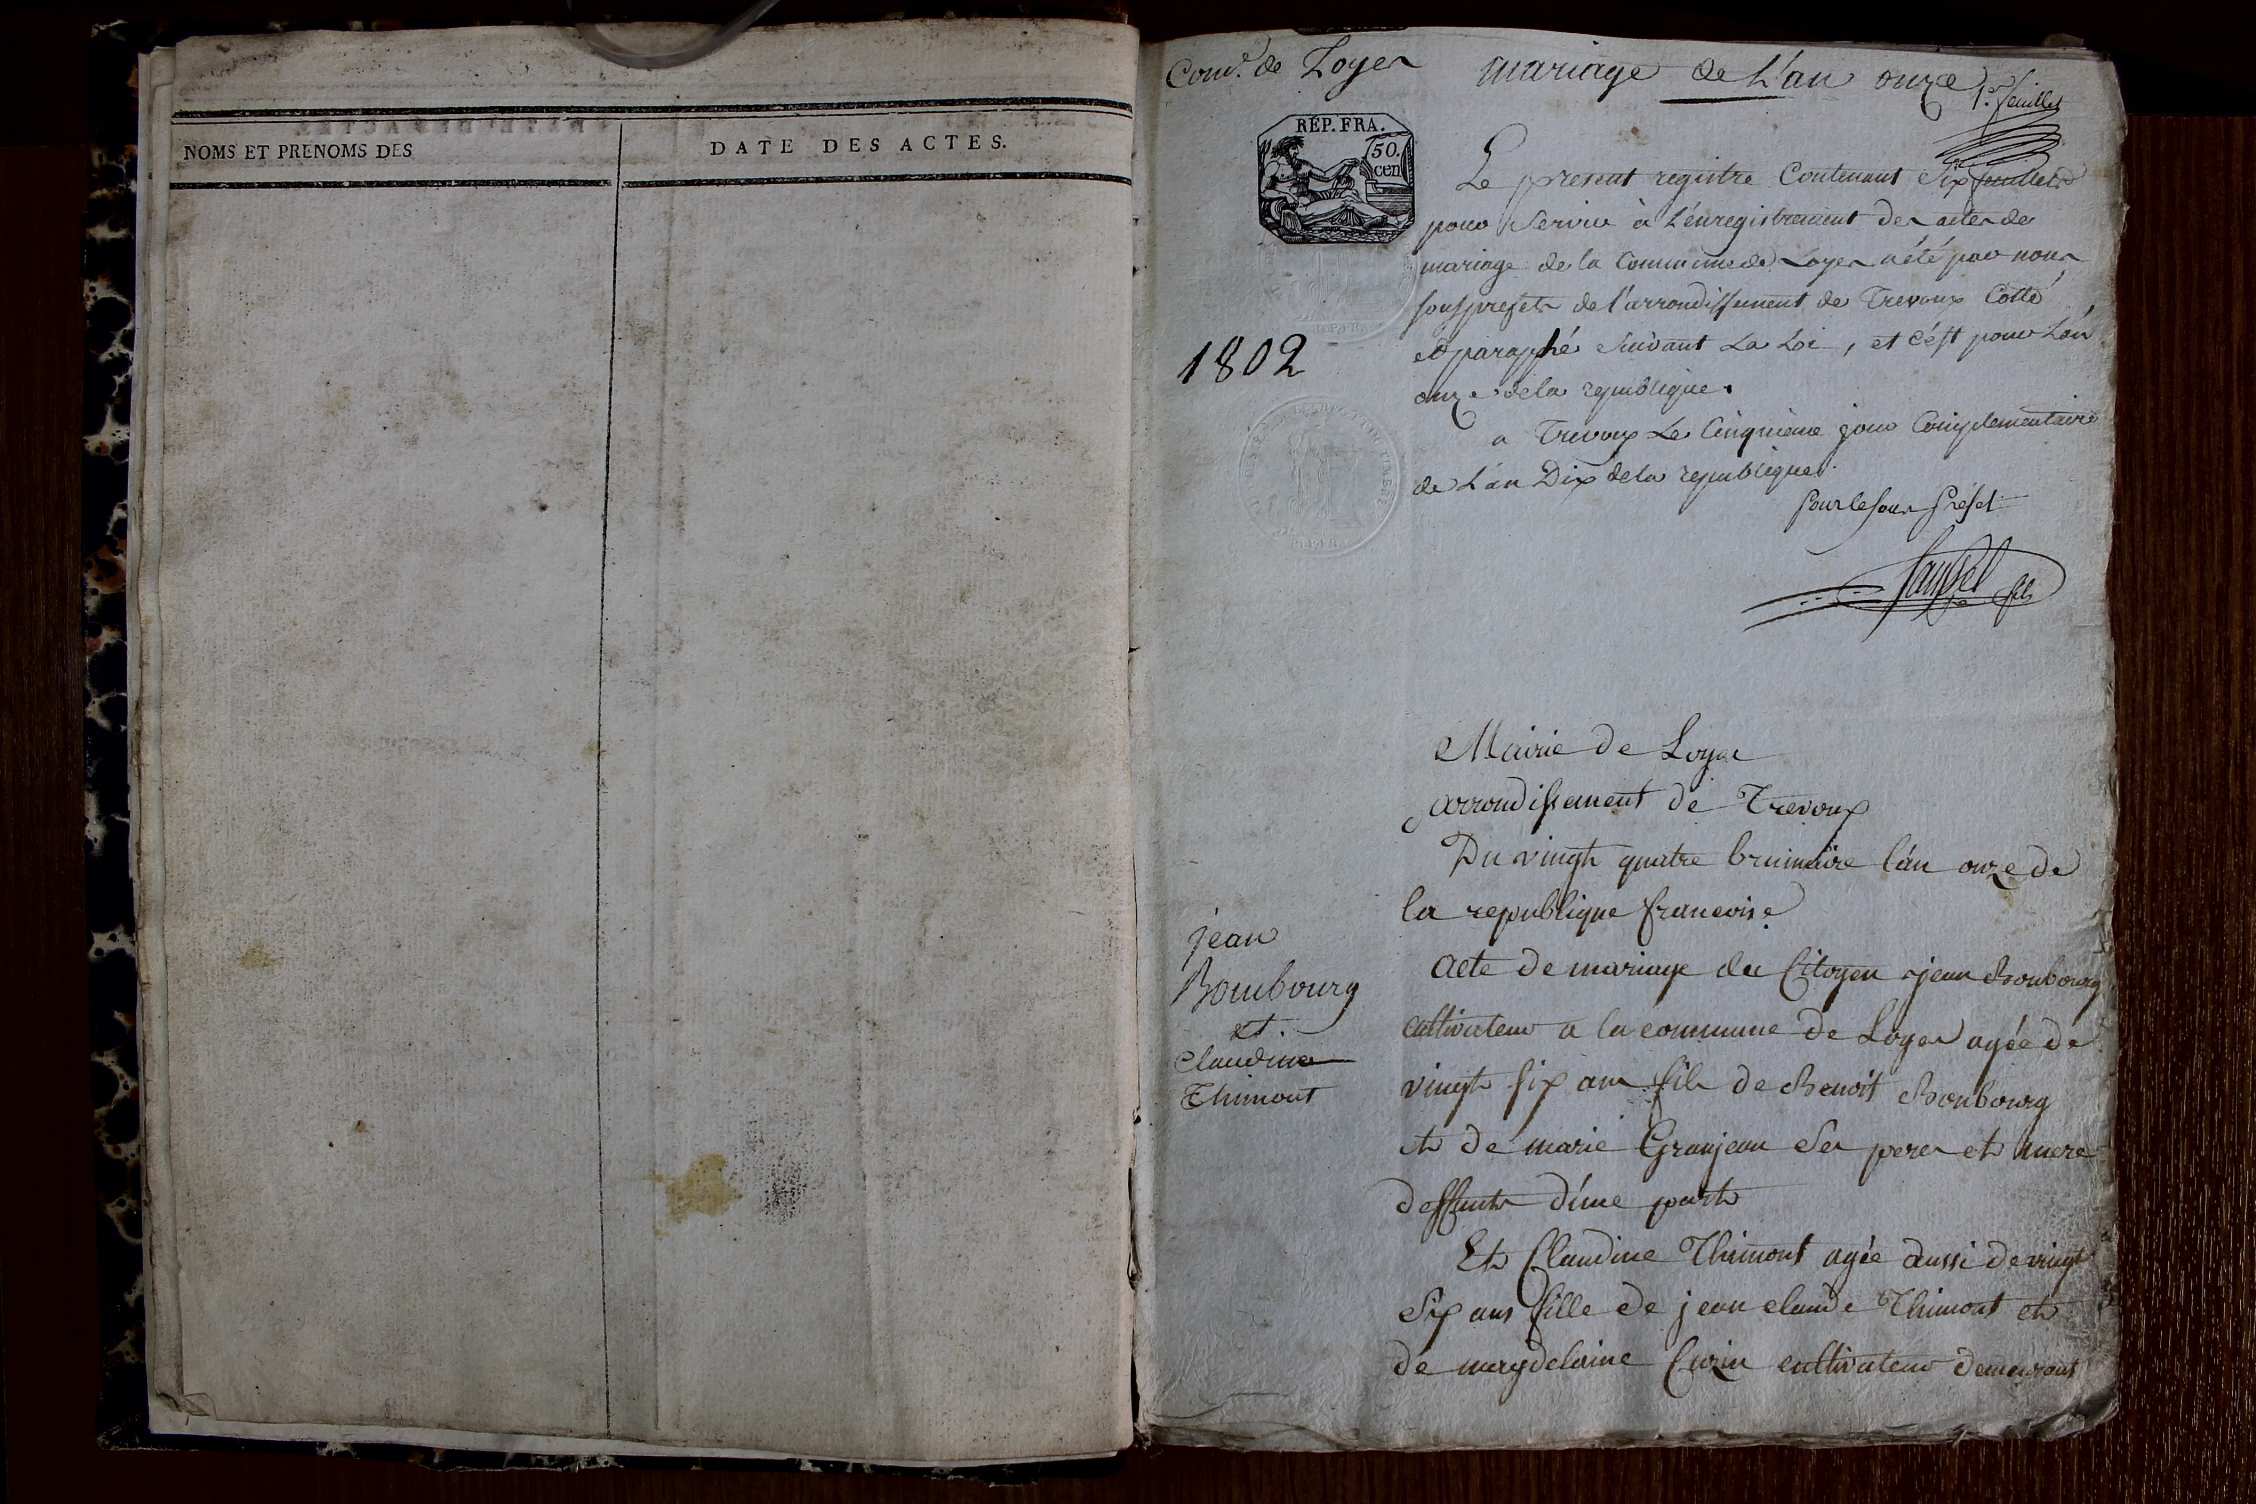 NOMS ET PRENOMS DES
DATE DES ACTES.
Com.e de Loyes mariage de L'an onze
1.er feuillet
RÉP. FRA.
50.
cen
Le present registre Contenant Six feuillets
pour Servir à L'enregistrement des actes de
mariage de la Commune de Loyes a été par nous
souspréfet de l'arrondissement de Trevoux Cotté
et paraphé Suivant La Loi, et c'est pour L'an
onze de la republique.
a Trevoux Le Cinquieme jour Complementaire
de L'an Dix de la republique.
Pour le Sous Préfet
fils
1802
Mairie de Loyes
arrondissement de Trevoux
Du vingt quatre brumaire l'an onze de
la republique francoise
jean
Bombourg
et
Claudine
Thimont
Acte de mariage du Citoyen jean Bonbourg
cultivateur a la commune de Loyes agée de
vingt six ans fils de Benoit Bonbourg
et de marie Granjean Ses peres et mere
deffunts d'une part
Et Claudine Thimont agée aussi de vingt
Six ans fille de jean claude Thimont et
de magdelaine Curin cultivateur demeurant